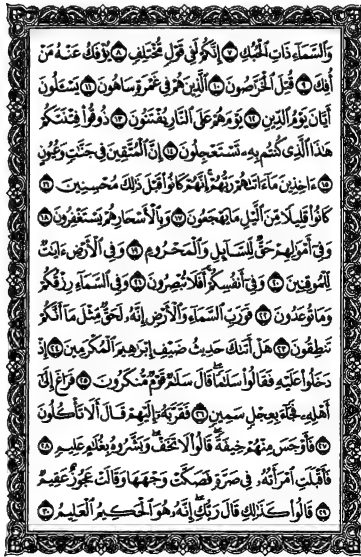 وَالسَّمَآءِ ذَاتِ الْحُبُكِ ٧ إِنَّكُمْ لَفِى قَوْلٍ مُّخْتَلِفٍ ٨ يُؤْفَكُ عَنْهُ مَنْ
أُفِكَ ٩ قُتِلَ الْخَرَّاصُونَ ١٠ الَّذِينَ هُمْ فِى غَمْرَةٍ سَاهُونَ ١١ يَسْـَٔلُونَ
أَيَّانَ يَوْمُ الدِّينِ ١٢ يَوْمَ هُمْ عَلَى النَّارِ يُفْتَنُونَ ١٣ ذُوقُوا۟ فِتْنَتَكُمْ
هَٰذَا الَّذِى كُنتُم بِهِۦ تَسْتَعْجِلُونَ ١٤ إِنَّ الْمُتَّقِينَ فِى جَنَّٰتٍ وَعُيُونٍ
١٥ ءَاخِذِينَ مَآ ءَاتَىٰهُمْ رَبُّهُمْ إِنَّهُمْ كَانُوا۟ قَبْلَ ذَٰلِكَ مُحْسِنِينَ ١٦
كَانُوا۟ قَلِيلًا مِّنَ الَّيْلِ مَا يَهْجَعُونَ ١٧ وَبِالْأَسْحَارِ هُمْ يَسْتَغْفِرُونَ ١٨
وَفِىٓ أَمْوَٰلِهِمْ حَقٌّ لِّلسَّآئِلِ وَالْمَحْرُومِ ١٩ وَفِى الْأَرْضِ ءَايَٰتٌ
لِّلْمُوقِنِينَ ٢٠ وَفِىٓ أَنفُسِكُمْ أَفَلَا تُبْصِرُونَ ٢١ وَفِى السَّمَآءِ رِزْقُكُمْ
وَمَا تُوعَدُونَ ٢٢ فَوَرَبِّ السَّمَآءِ وَالْأَرْضِ إِنَّهُۥ لَحَقٌّ مِّثْلَ مَآ أَنَّكُمْ
تَنطِقُونَ ٢٣ هَلْ أَتَىٰكَ حَدِيثُ ضَيْفِ إِبْرَٰهِيمَ الْمُكْرَمِينَ ٢٤ إِذْ
دَخَلُوا۟ عَلَيْهِ فَقَالُوا۟ سَلَٰمًا قَالَ سَلَٰمٌ قَوْمٌ مُّنكَرُونَ ٢٥ فَرَاغَ إِلَىٰٓ
أَهْلِهِۦ فَجَآءَ بِعِجْلٍ سَمِينٍ ٢٦ فَقَرَّبَهُۥٓ إِلَيْهِمْ قَالَ أَلَا تَأْكُلُونَ
٢٧ فَأَوْجَسَ مِنْهُمْ خِيفَةً قَالُوا۟ لَا تَخَفْ وَبَشَّرُوهُ بِغُلَٰمٍ عَلِيمٍ ٢٨
فَأَقْبَلَتِ امْرَأَتُهُۥ فِى صَرَّةٍ فَصَكَّتْ وَجْهَهَا وَقَالَتْ عَجُوزٌ عَقِيمٌ
٢٩ قَالُوا۟ كَذَٰلِكِ قَالَ رَبُّكِ إِنَّهُۥ هُوَ الْحَكِيمُ الْعَلِيمُ ٣٠